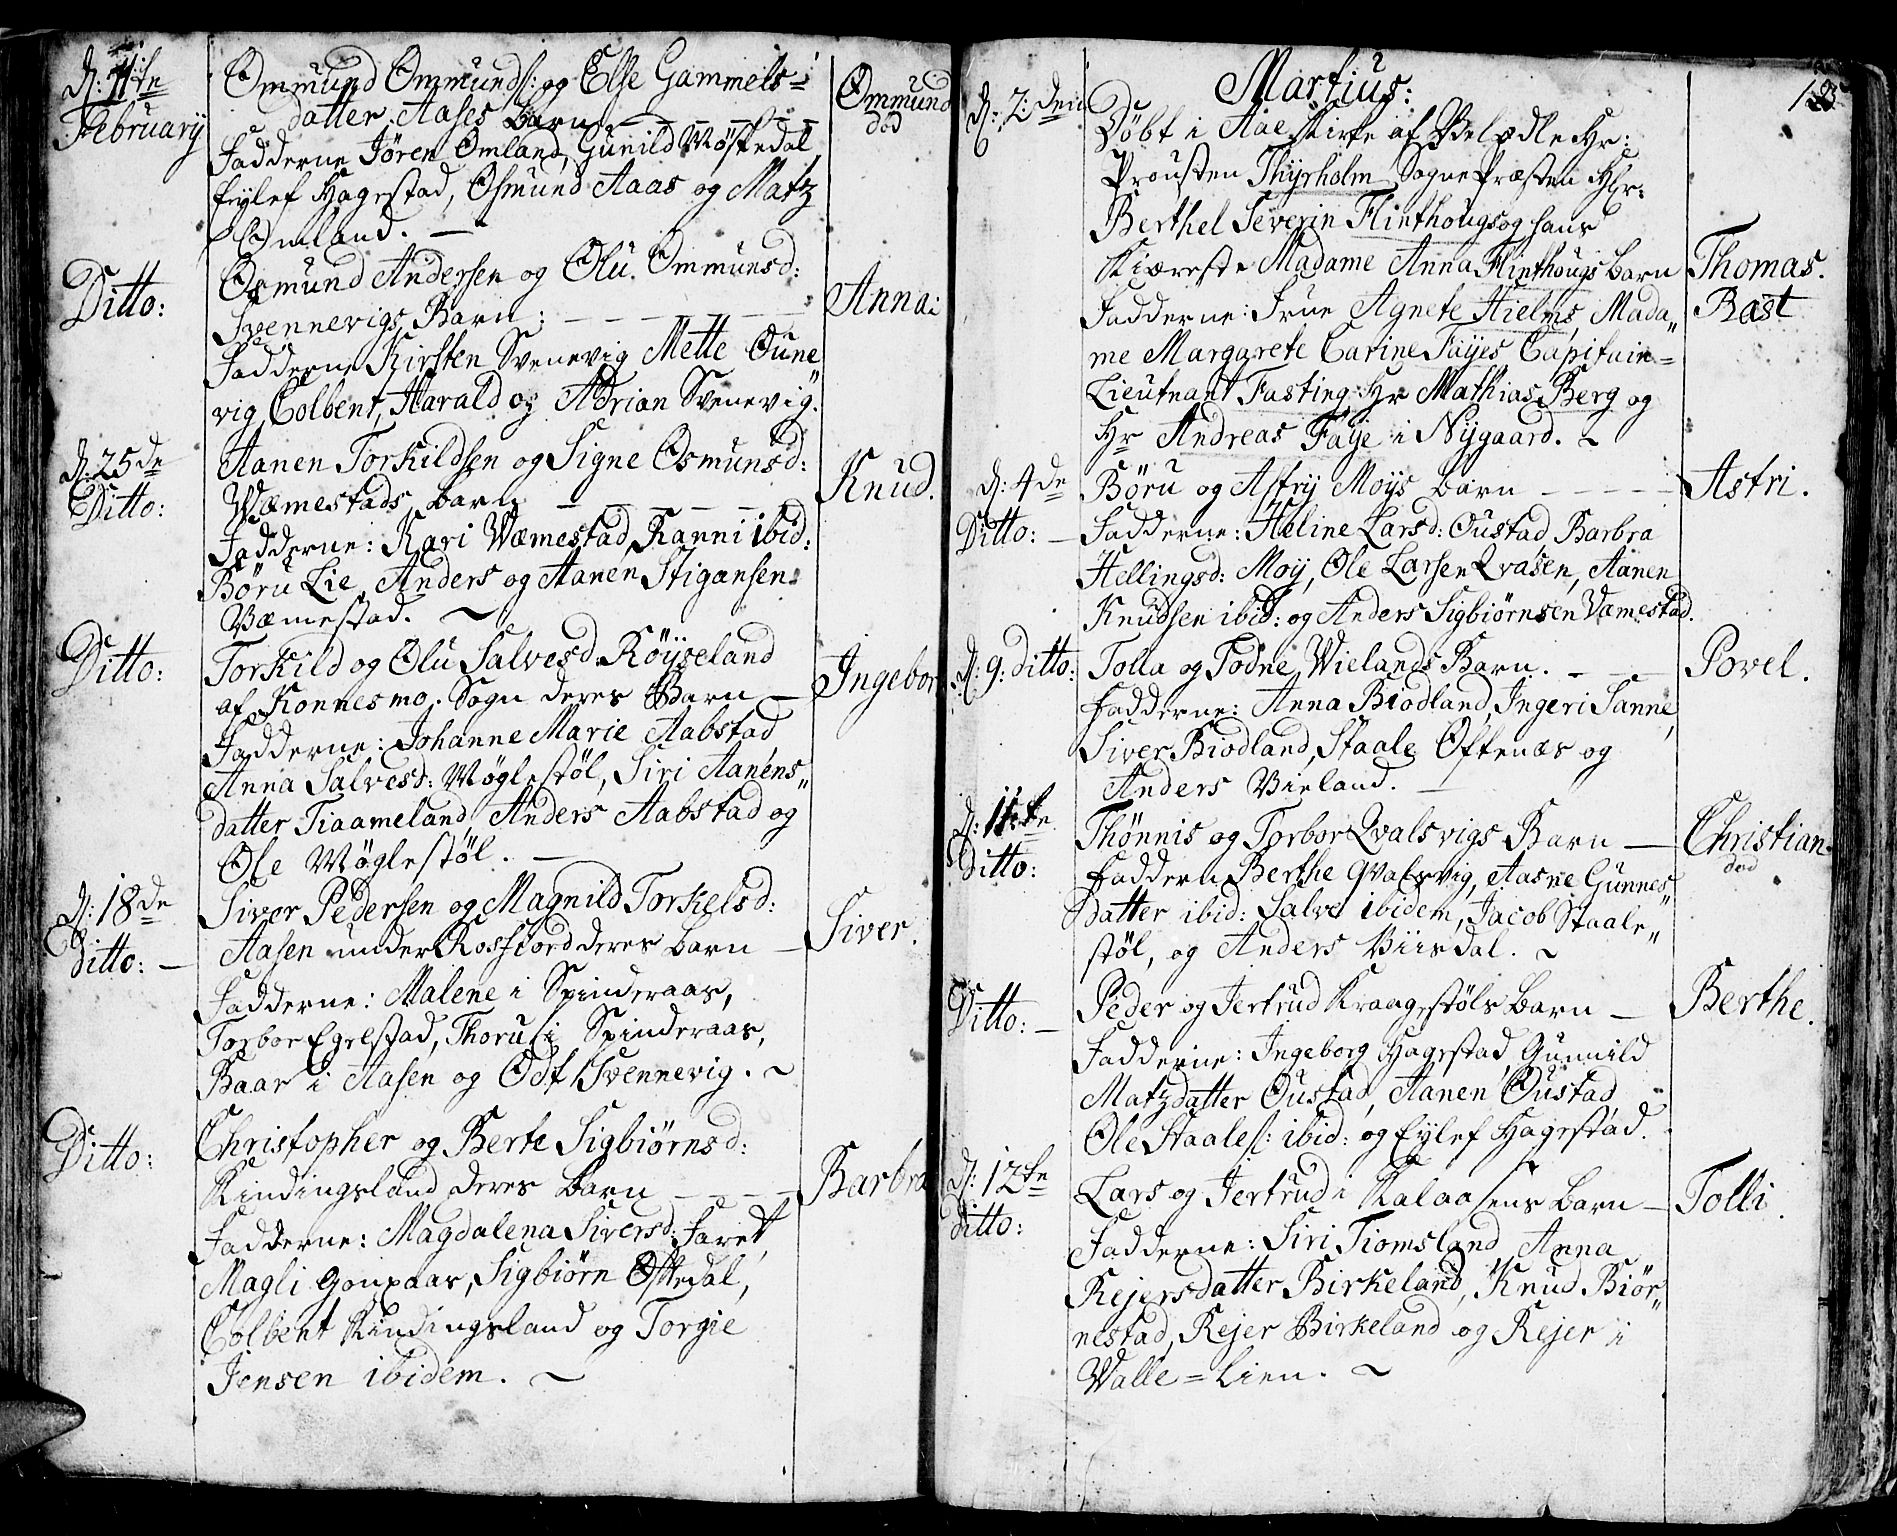 D: 11te Ommund Ommunds: og Else Gammels=
February datter Aases barn. Ommund
død
Fadderne Jören Omland, Gunild Møskedal
Eylef Hagestad, Osmund Aaas og Matz
Omland.
Ditto: Osmund Andersen og Olu Ommunsd:
Svennevigs Barn: Anna:
Fadderne Kirsten Svenevig Mette Oune„
vig, Colbent, Harald og Adrian Svenevig.
D: 25de Aanen Torkildsen og Signe Osmunsd:
Ditto: Wæmestads barn Knud.
Fadderne: Kari Wæmestad, Ranni ibid:
Böru Lie, Anders og Aanen Stigansen
Væmestad.
Ditto: Torkild og Olu Salvesd. Röyseland
af Konnesmo. Sogn deres Barn Ingebor
Fadderne: Johanne Marie Aabstad
Anna Salvesd: Möglestöl, Siri Aanens„
datter Tiaameland, Anders Aabstad og
Ole Möglestöl.
D: 18de Siver Pedersen og Magnild Torkelsd:
ditto: Aasen under Rosfiord deres barn Siver.
Fadderne: Malene i Spinderaas,
Torbor Egelstad, Thoru i Spinderaas,
Baar i Aasen og Odt Svennevig.
Ditto: Christopher og Berte Sigbiörnsd:
Kindingsland deres barn Barbra
Fadderne: Magdalena Siversd: Faret,
Magli Gouxaas, Sigbiörn Oftedal,
Colbent Kindingsland og Torgie
Jensen ibidem.
Martius: 18
D: 2: den Döbt i Aae Kirke af Velædle Hr:
Prousten Thyrholm Sogne Præsten Hr:
Berthel Severin Flinthougs og hans
Kiæreste Madame Anna Flinthougs barn Thomas.
Fadderne: Frue Agnete Hielms, Mada„ Bast
me Margarete Carine Fayes Capitain=
Lieutnant Fasting Hr Mathias Berg og
Hr Andreas Faye i Nygaard.
D: 4de Böru og Astry Moys barn Astri.
Ditto: Fadderne: Heline Larsd: Oustad Barbra
Hellingsd: Moy, Ole Larsen Qvasen, Aanen
Knudsen ibid: og Anders Sigbiörnsen Væmestad.
D: 9: ditto: Tolla og Todne Wielands Barn. Povel.
Fadderne: Anna Biodland, Ingeri Sanne,
Siver Biodland, Staale Oftenæs og
Anders Vieland.
D: 11te Thönnis og Torbor Qvalsvigs Barn Christian
Ditto: død
Faddern Berthe Qvalsvig, Aasne Gunnes„
datter ibid: Salve ibidem, Jacob Staale„
stöl, og Anders Viisdal.
Ditto: Peder og Jertrud Kraagestöls barn Berthe.
Fadderne: Ingeborg Hagestad, Gunnild
Matzdatter Oustad, Aanen Oustad,
Ole Staales: ibid: og Eylef Hagestad.
D: 12te Lars og Jertrud i Kalaasens barn Tolli.
ditto:
Fadderne: Siri Tiomsland, Anna
Rejersdatter Birkeland, Knud Biör„
nestad, Rejer Birkeland og Rejer i
Valle=Lien.